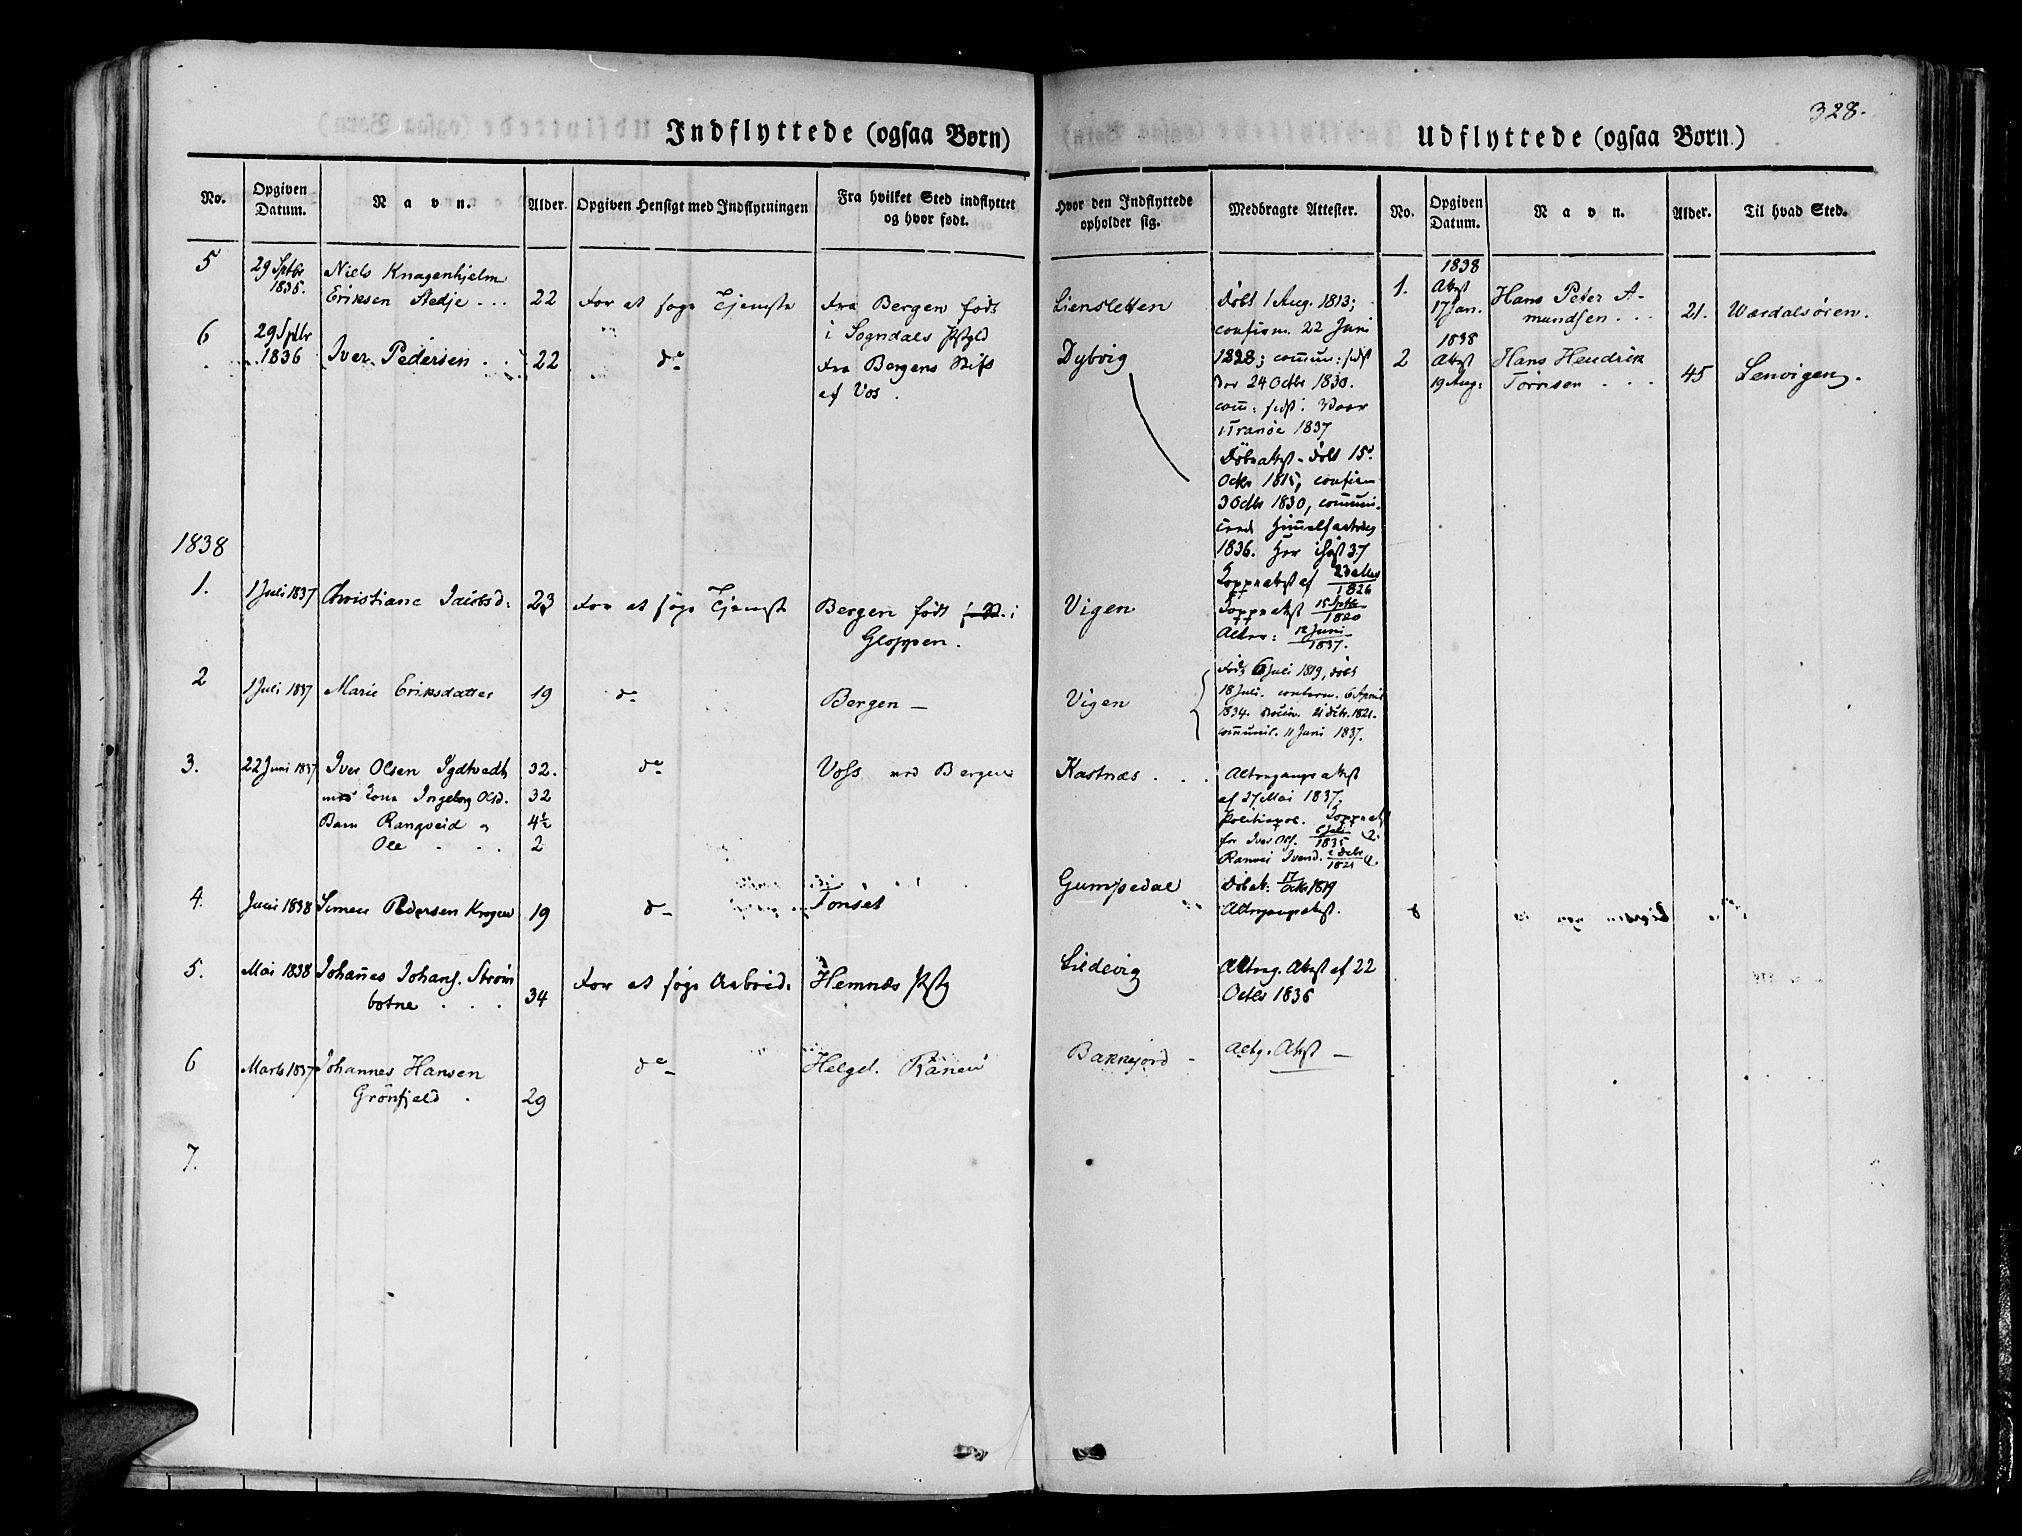 328.
Indflyttede (ogsaa Børn)
No.
Opgiven Datum.
Navn.
Alder.
Opgiven Hensigt med Indflytningen
Fra hvilket Sted indflyttet og hvor født.
Hvor den Indflyttede opholder sig.
Medbragte Attester.
5
29 Sptbr
1835.
Niels Knagenhjelm
Eriksen Stedje . . .
22
For at søge Tjeneste
Fra Bergen født
i Sogndals Pstgld
Liensletten
Døbt 1 Aug. 1813;
confirm. 22 Juni
1828; commun: sidst
24 Octbr 1830.
com: sidst:
i Tranøe 1837
6
29 Sptbr
1836
Iver Pedersen . .
22
do
Fra Bergens Stift
af Vos.
Dybvig
Døbeattest - døbt 15
Octbr 1815, confirm
3 Octbr 1830, communi-
1836. Her
1838
1.
1 Juli 1837
Christiane Jacobsd:
23
For at søge Tjeneste
Bergen født i
Gloppen.
Vigen
Koppeattest af
1826
Koppeattest 15 Sptbr
1820
Alter: 12 Juni
1837.
2
1 Juli 1837
Marie Eriksdatter
19
do
Bergen —
Vigen
Født 6 Juli 1819, døbt
18 Juli. confirm. 6 April
1834. 1821.
communic. 11 Juni 1837.
3.
22 Juni 1837
Iver Olsen
32.
do
Voss ved Bergen
Kastnæs . . .
Altergangsattest
af 27 Mai 1837.
med Kone Ingeborg Olsd.
32
Barn Rangveid og
4½
Ole . . .
2
Politiepas. Koppeat
for Iver Ols.
1835
Ranvei Iversd.
1821
4.
Juni 1838
Simen Pedersen Krogen
19
do
Tonset
Gumpedal
Døbeat: 17 Octbr 1819
Altergangsattest.
5.
Mai 1838
Johanes Johans. Strøm
botne . . .
34
For at søge Arbeid.
Hemnæs Pstg
Lildevig
Alterg. Attest af 22
Octbr 1836
6
Marts 1837
Johannes Hansen
Grønfjeld .
29
do
Helgel. Ranen
Baknejord -
Altg. Attest —
7.
Udflyttede (ogsaa Børn.)
No.
Opgiven Datum.
Navn.
Alder.
Til hvad Sted.
1.
1838
Attest
17 Jan.
Hans Peter A-
mundsen . . .
21.
Værdalsøren.
2
1838
Attest
19 Aug:
Hans Hendrik
Tørresen . . .
45
Lenvigen.